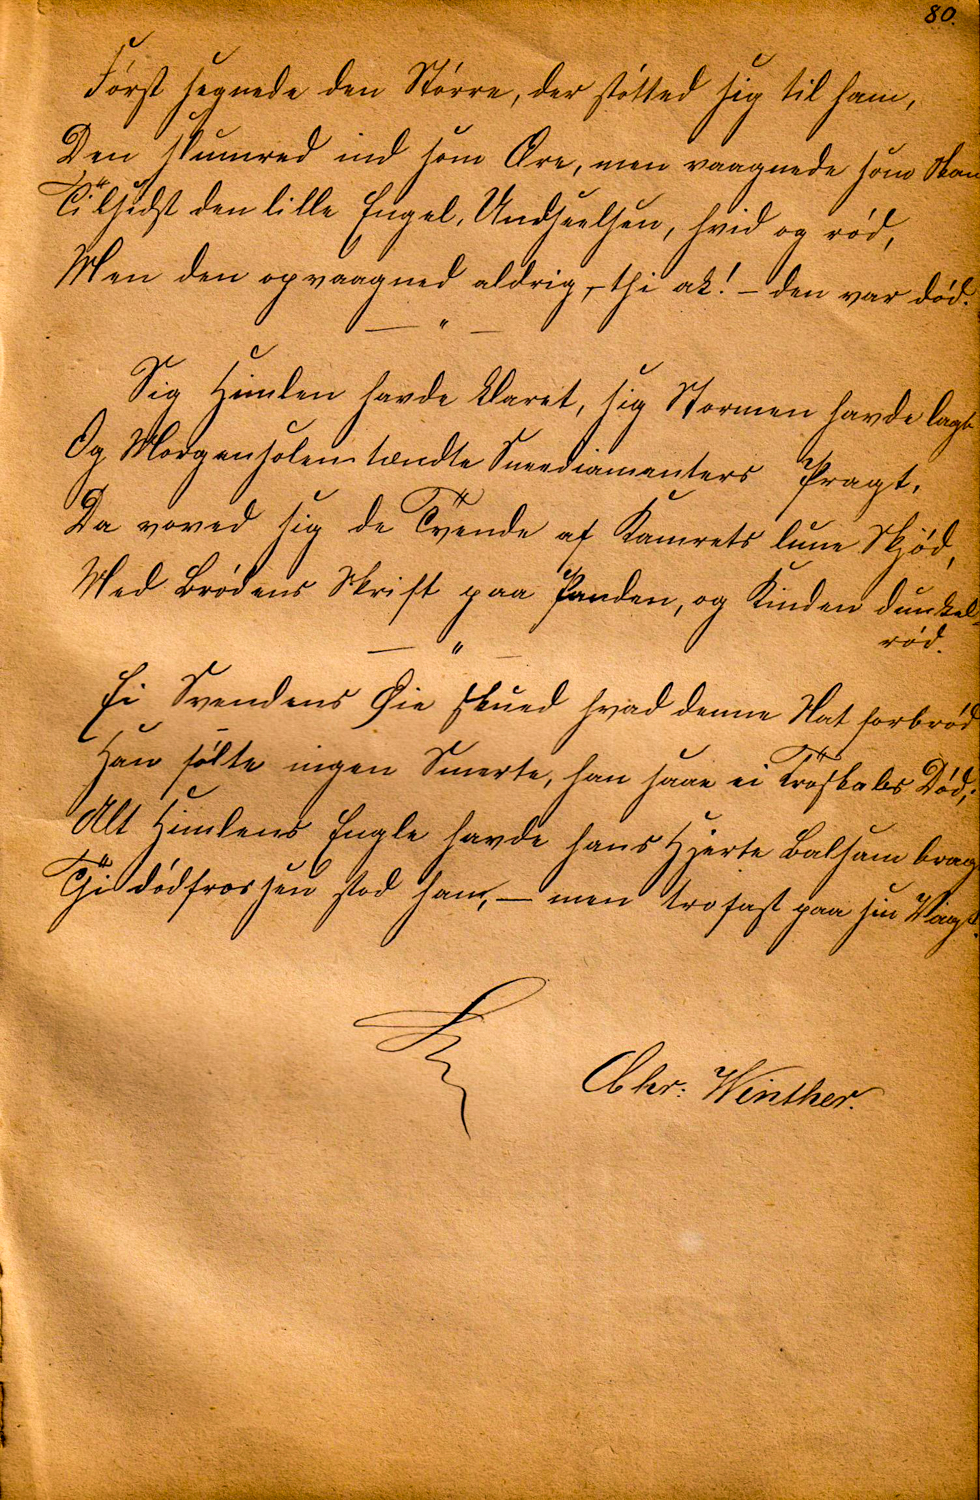 80.
Först segnede den Större, der stötted sig til ham,
Den slumred ind som Ære, men vaagnede som Skam
Tilsidst den lille Engel, Undseelsen, hvid og röd,
Men den opvaagned aldrig, – thi ak! – den var död.
— " —
Sig Himlen havde klaret, sig Stormen havde lagt
Og Morgensolen tændte Sneediamanters Pragt,
Da voved sig de Tvende af Kamrets lune Skjöd,
Med Brödens Skrift paa Panden, og Kinden dunkel-
röd.
— " —
Ei Svendens Øie skued hvad denne Nat forbröd
Han fölte ingen Smerte, han saae ei Troskabs Död;
Alt Himlens Engle havde hans Hjerte Balsam brag
Thi dödfrossen stod ham, — men trofast paa sin Vagt.
Chr: Winther.